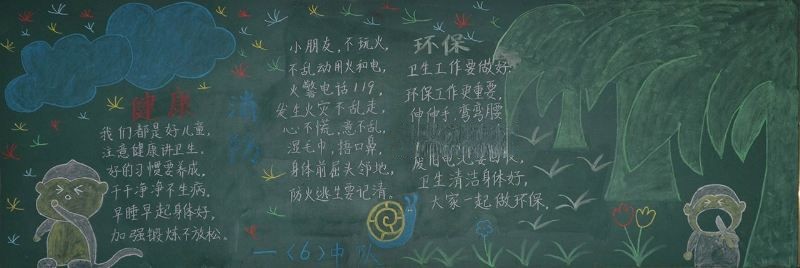 健康
我们都是好儿童，
注意健康讲卫生。
好的习惯要养成，
干干净净不生病，
早睡早起身体好，
加强锻炼不放松。
消防
小朋友，不玩火，
不乱动用火和电，
火警电话119，
发生火灾不乱走，
心不慌，意不乱，
湿毛巾，捂口鼻，
身体前屈去邻地，
防火逃生要记清。
环保
卫生工作要做好，
环保工作更重要，
伸伸手，弯弯腰
废旧电池要回收，
卫生清洁身体好，
大家一起做环保。
一〈6〉中队